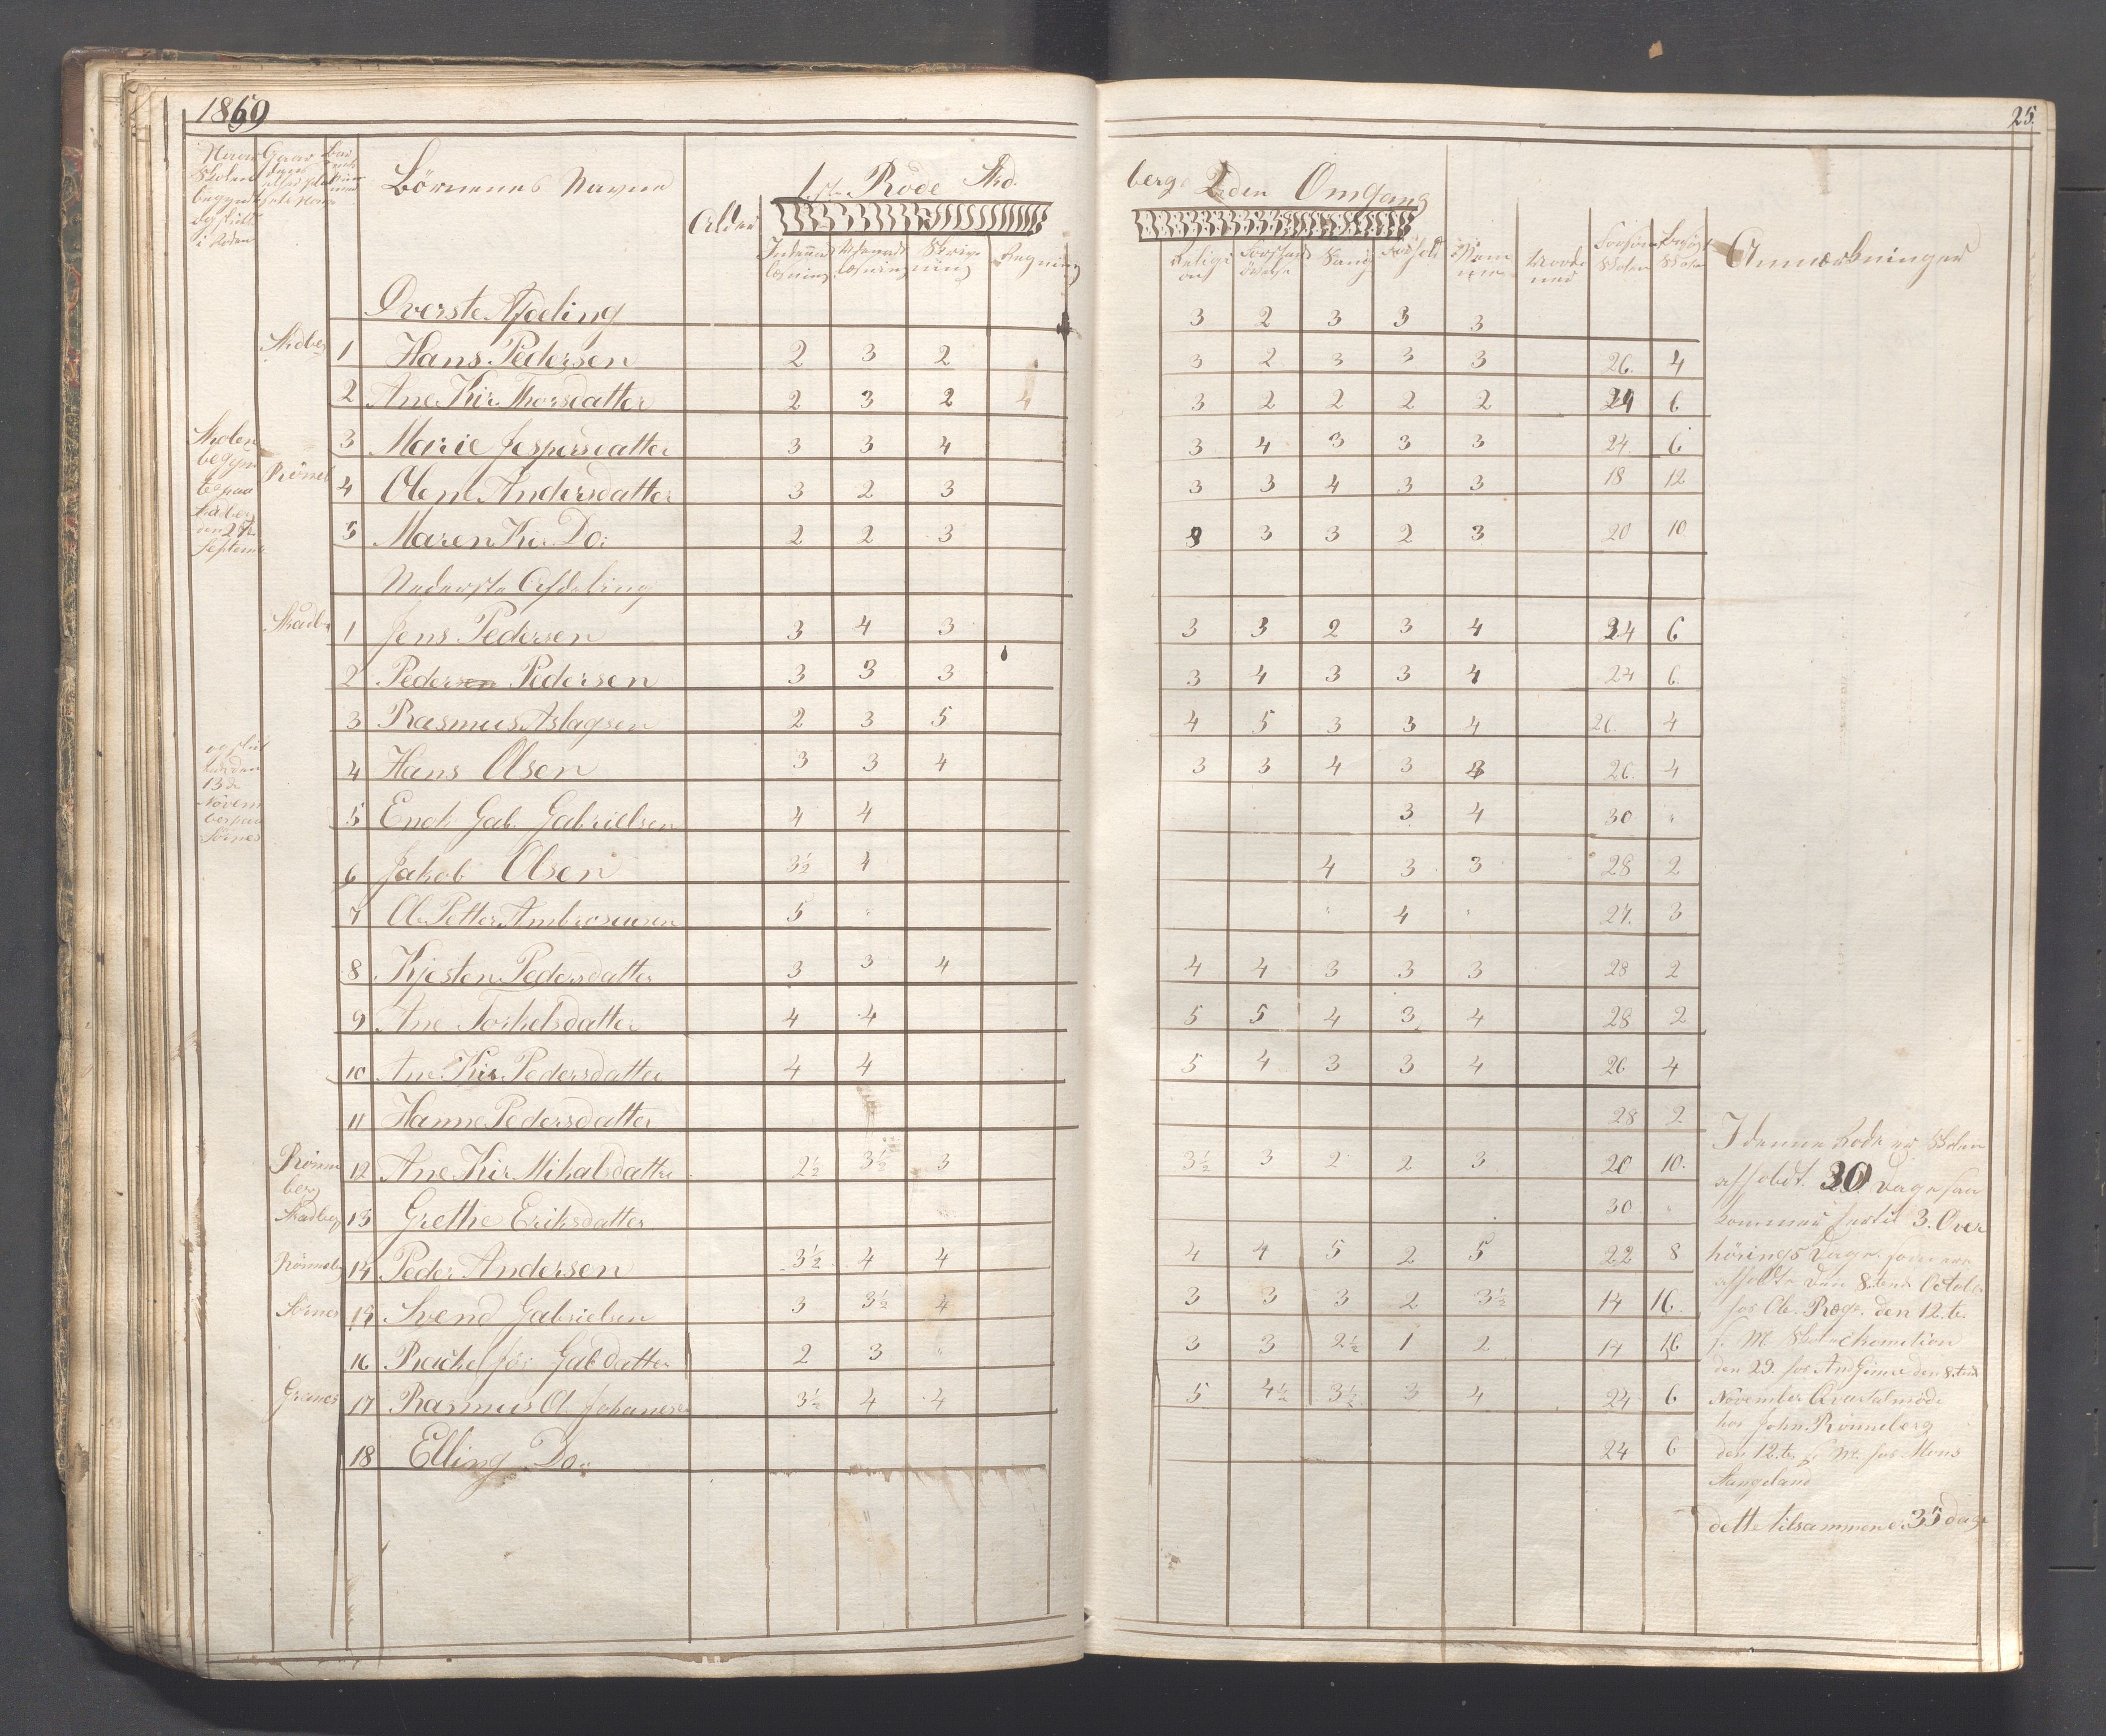 1869
25.
Börnenes Navne
Alder
1ste Rode Skd.
berg 2den Omgang
Skrivning
Regning
Religion
Sang
Forhold
Anmærkninger
Överste Afdeling 3 2 3 3 3
Skdberg 1 Hans Pedersen 2 3 2 3 2 3 3 3 26. 4
2 Ane Kir. Thorsdatter 2 3 2 4 3 2 2 2 2 24 6
3 Marie Jespersdatter 3 3 4 3 4 3 3 3 24. 6
4 Olene Andersdatter 3 2 3 3 3 4 3 3 18 12
5 Maren Kir. Do: 2 2 3 3 3 3 2 3 20 10
Skolen
begyn
tes paa
Skdberg
Septem
Nederste Afdeling
Skadbe 1 Jens Pedersen 3 4 3 3 3 2 3 4 24 6
2 Peder Pedersen 3 3 3 3 4 3 3 4 24 6
3 Rasmus Aslagsen 2 3 5 4 5 3 3 4 26. 4
4 Hans Olsen 3 3 4 3 3 4 3 3 26. 4
og slut
tede den
13de
Novem
ber paa
Sörnes
5 Enok Gab. Gabrielsen 4 4 3 4 30 "
6 Jakob Olsen 3½ 4 4 3 3 28 2
7 Ole Petter Ambrosiusen 5 " " 4 " 27. 3
8 Kjesten Pedersdatter 3 3 4 4 4 3 3 3 28 2
9 Ane Torkelsdatter 4 4 5 5 4 3 4 28 2
10 Ane Kir. Pedersdatter 4 4 5 4 3 3 4 26 4
11 Hanne Pedersdatter 28 2
Rönne
berg 12 Ane Kir Mikalsdatter 2½ 3½ 3 3½ 3 2 2 3 20 10.
Skadberg 13 Grethe Eriksdatter 30 "
Rönneb 14 Peder Andersen 3½ 4 4 4 4 5 2 5 22 8
Sörnes 15 Svend Gabrielsen 3 3½ 4 3 3 3 2 3½ 14 16.
16 Rachel Gabdatter 2 3 " 3 3 2½ 1 2 14 16
Granes 17 Rasmus Ol. Johanesen 3½ 4 4 5 4½ 3½ 3 4 24 6
18 Elling Do: 24 6
I denne Rode er Skolen
afholdt 30 Dage saa
kommer hertil 3. Over
hörings Dage som ere
afholdte den 8tende October
hos Ole Rege. den 12.te
f. M.
den 29. hos
November
hos John Rönneberg
den 12.te f. M. hos Mons
dette tilsammen 35 dage